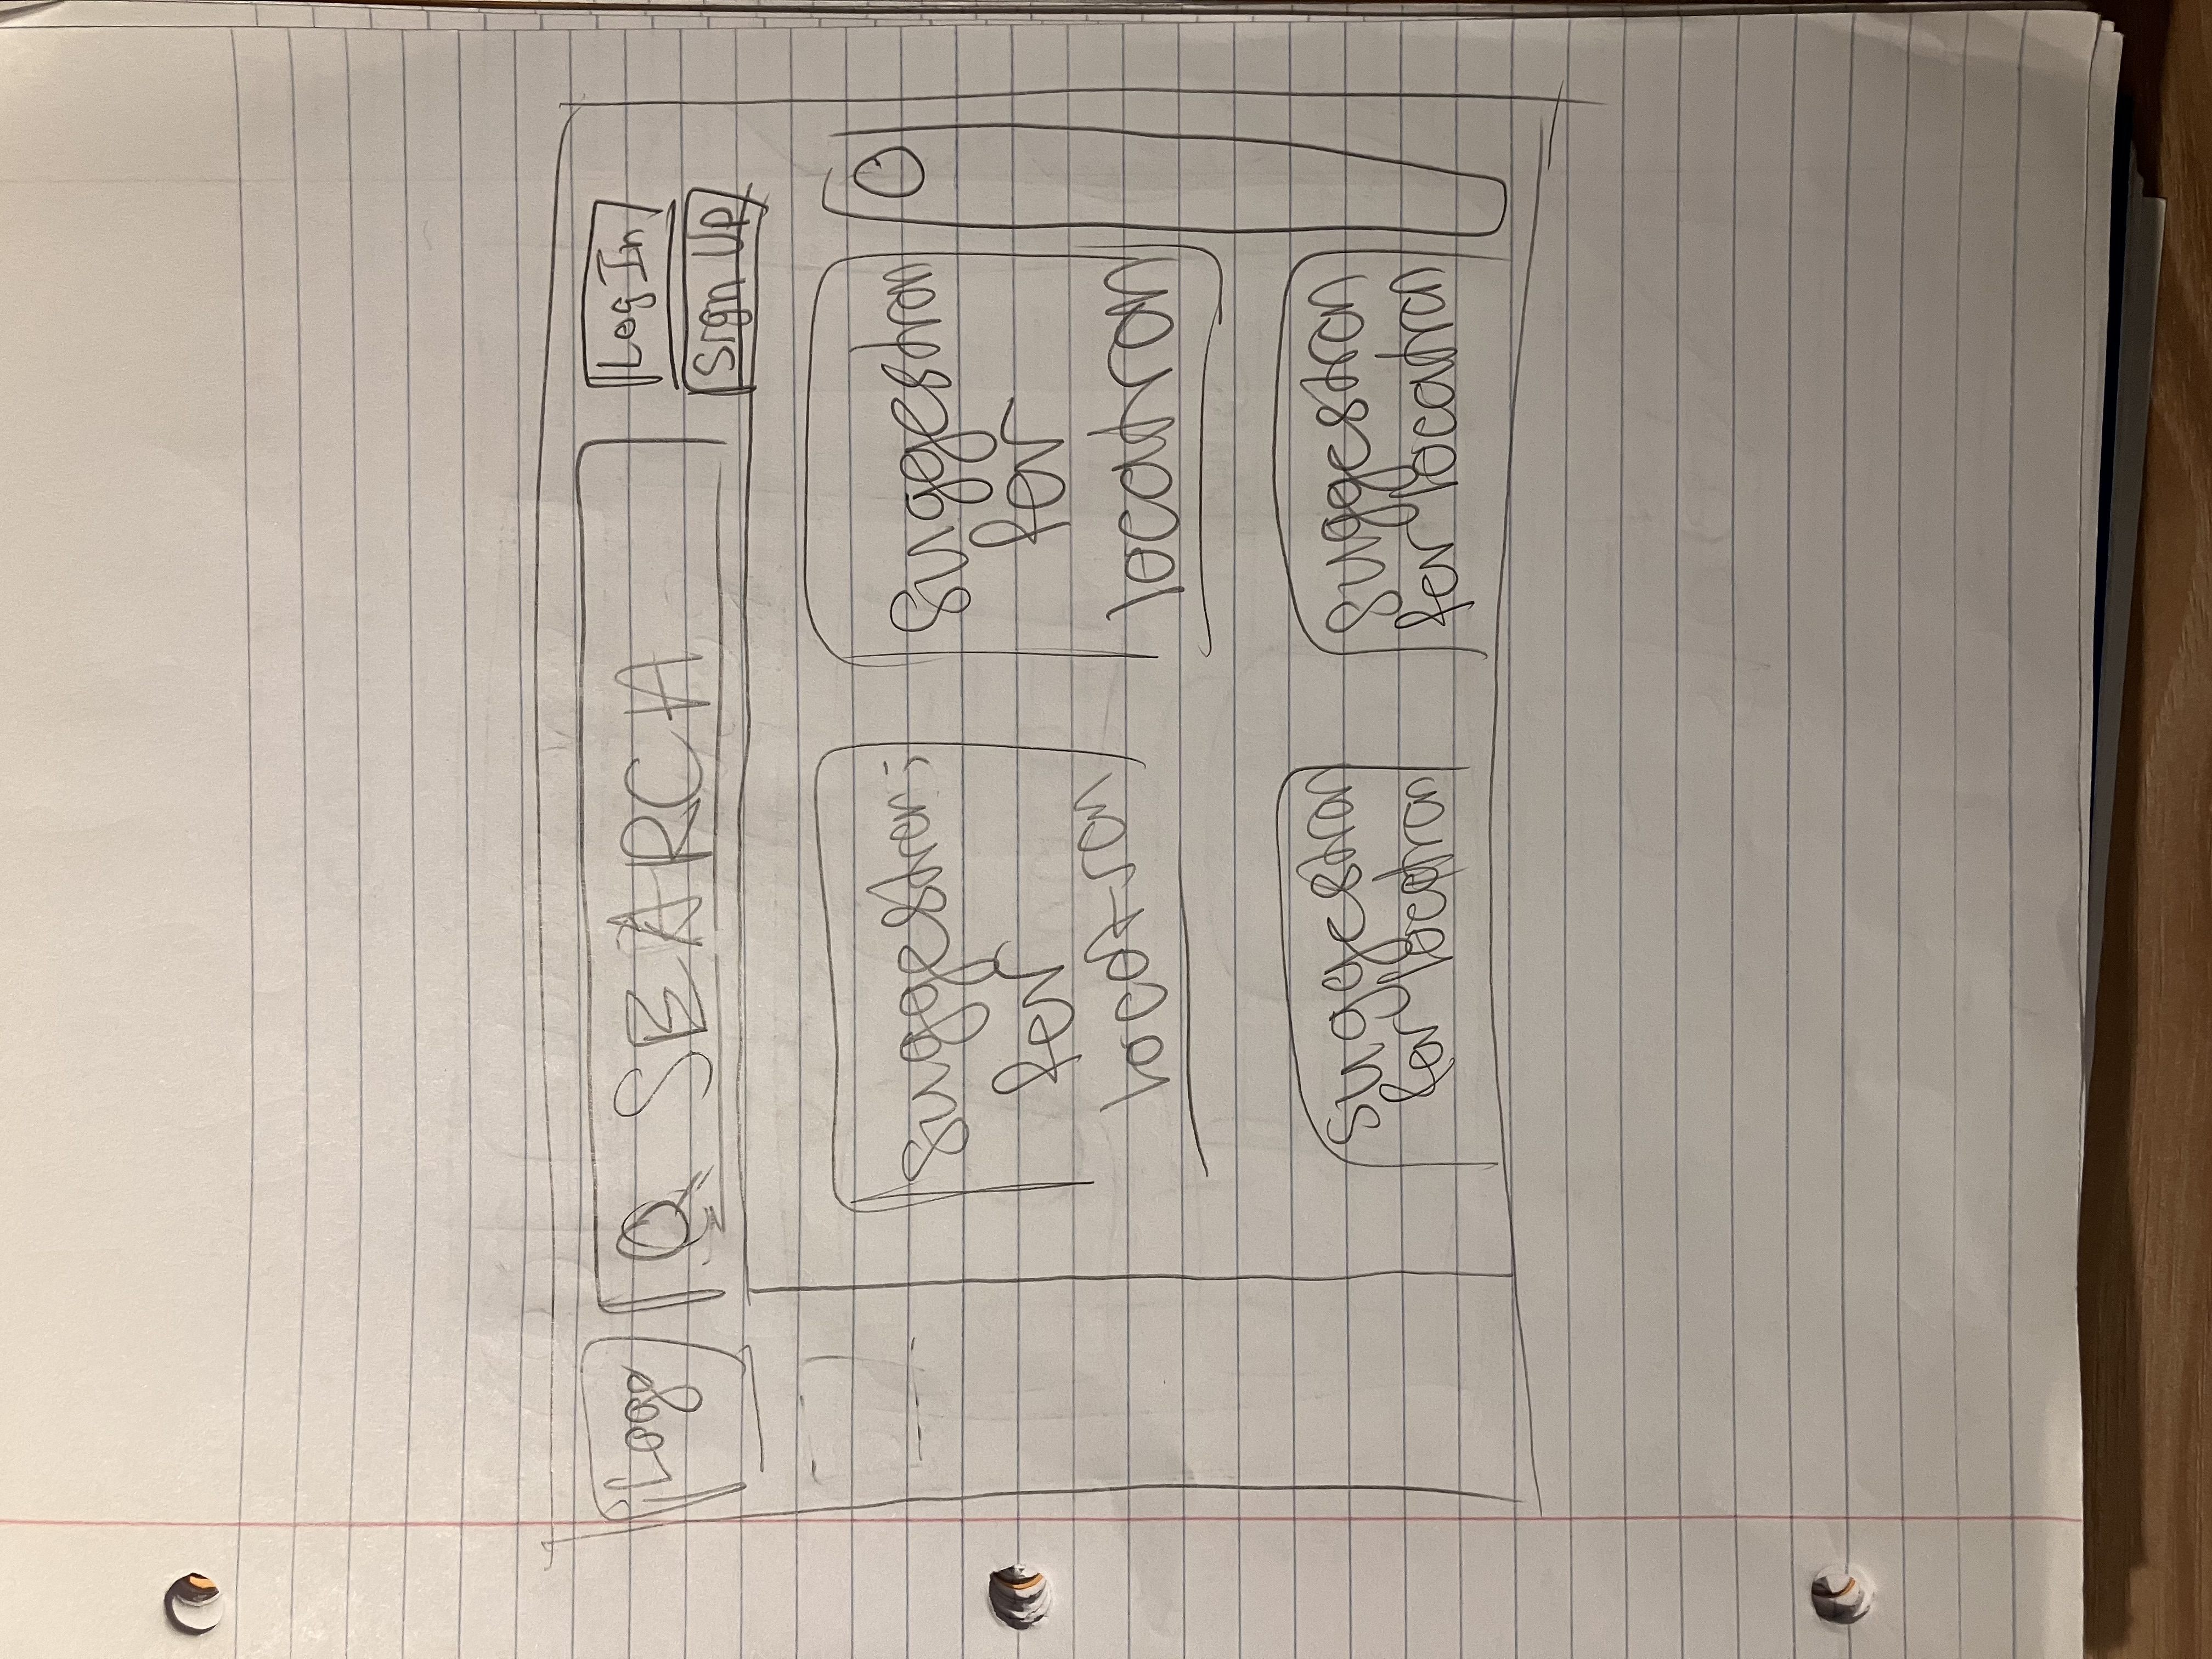 Logo
Q SEARCH
Log In
Sign Up
Suggestion
for
location
Suggestion
for
location
Suggestion
for location
Suggestion
for location